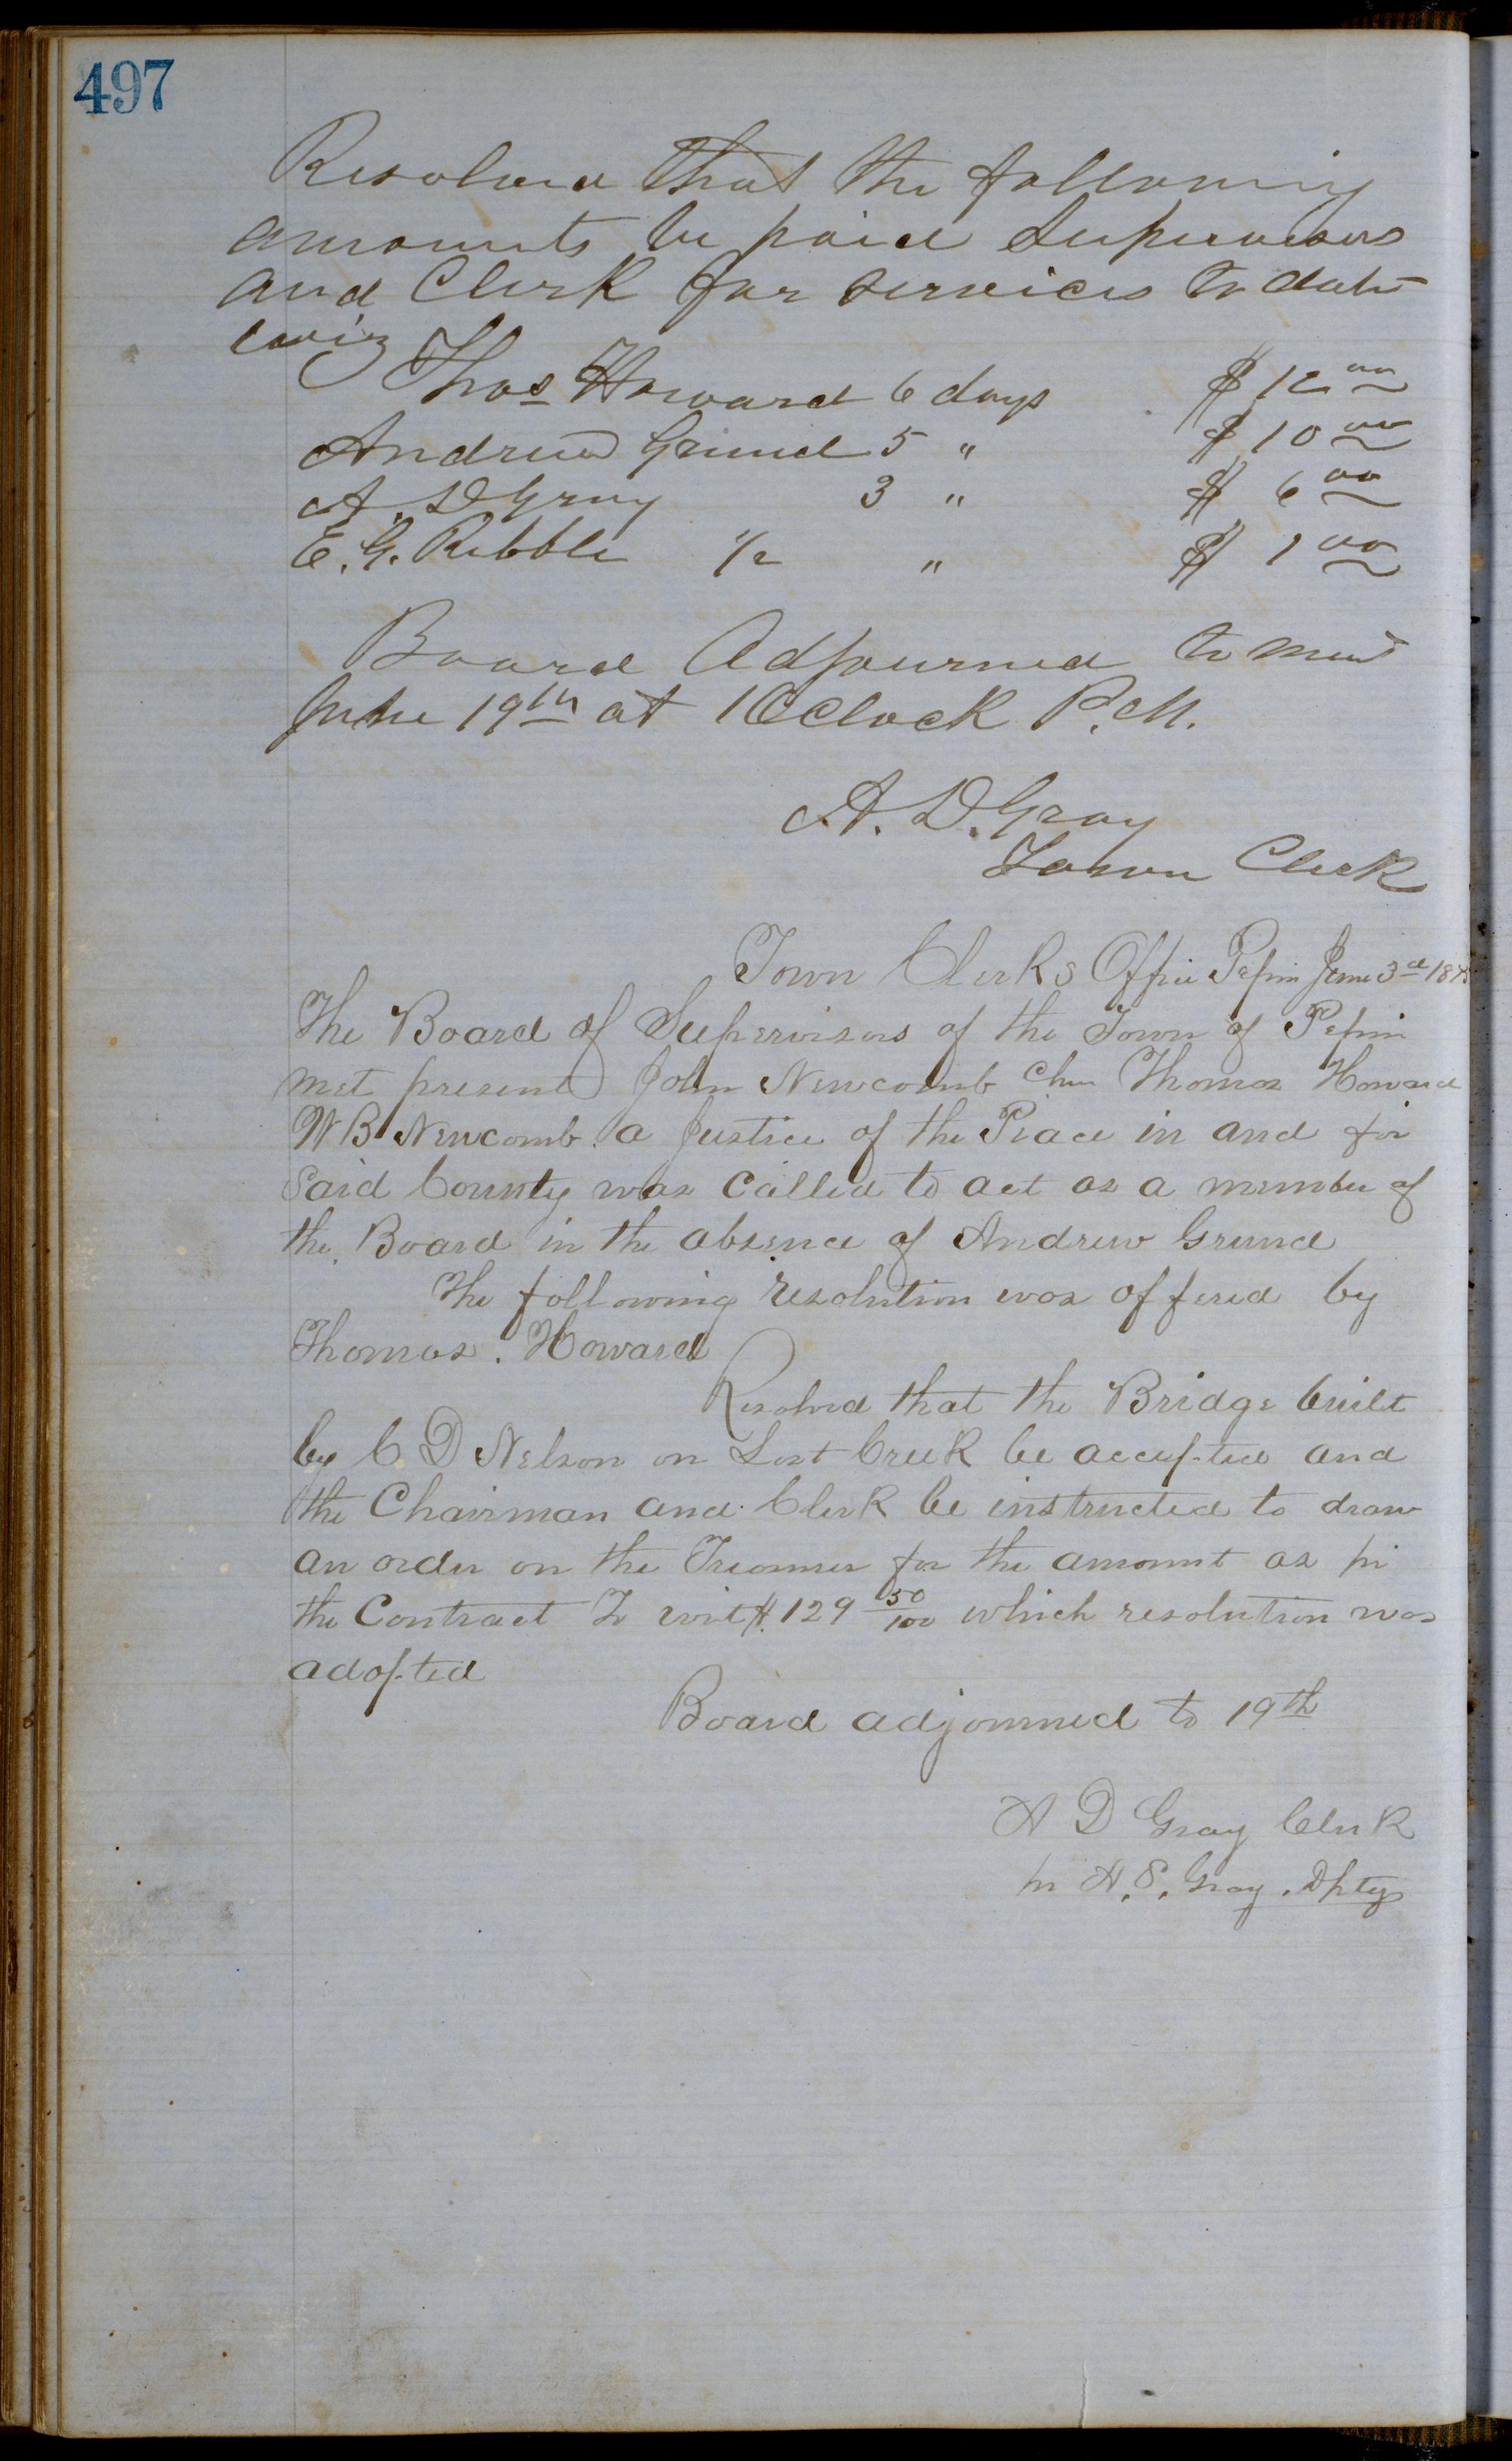 497
Resolved that the following
amounts be paid Supervisors
and Clerk for services to date
towiz
Thos Howard 6 days $ 12 00
Andrew Grund 5 " $ 10 00
A. D Gray 3 " $ 6 00
E. G. Ribble 1/2 " $ 1 00
Board Adjourned to meet
June 19th at 1 OClock P.M.
A. D. Gray
Town Clerk
Town Clerks Office Pepin June 3d
The Board of Supervisors of the Town of Pepin
met present John Newcomb Chm Thomas Howard
W B Newcomb. a Justice of the Peace in and for
Said County was Called to act as a member of
the. Board in the absence of Andrew Grund
The following resolution was offered by
Thomas. Howard
Resolved that the Bridge built
by C D Nelson on Lost Creek be accepted and
the Chairman and Clerk be instructed to draw
an order on the Treasurer for the amount as per
the Contract To wit $.129 50/100 which resolution was
adopted
Board adjourned to 19th
A D Gray Clerk
per A. S. Gray. Dpty